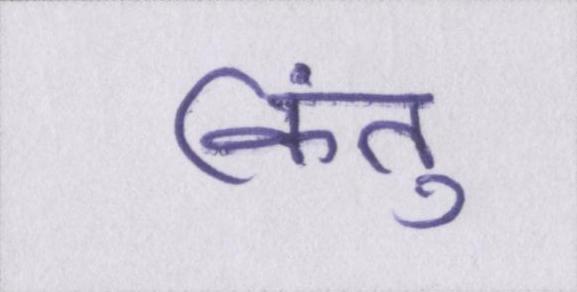 किंतु